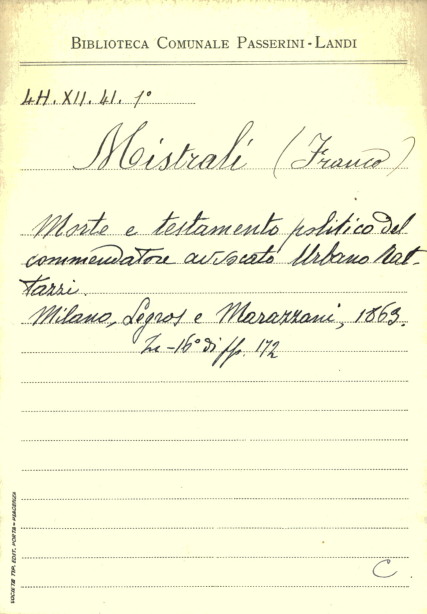 BIBLIOTECA COMUNALE PASSERINI-LANDI
4H. XII. 41. 1°
Mistrali (Franco)
Morte e testamento politico del
commendatore avvocato Urbano Rat-
tazzi.
Milano, Legros e Marazzani, 1863.
In-16° di pp. 172
C
SOCIETÀ TIP. EDIT. PORTA - PIACENZA